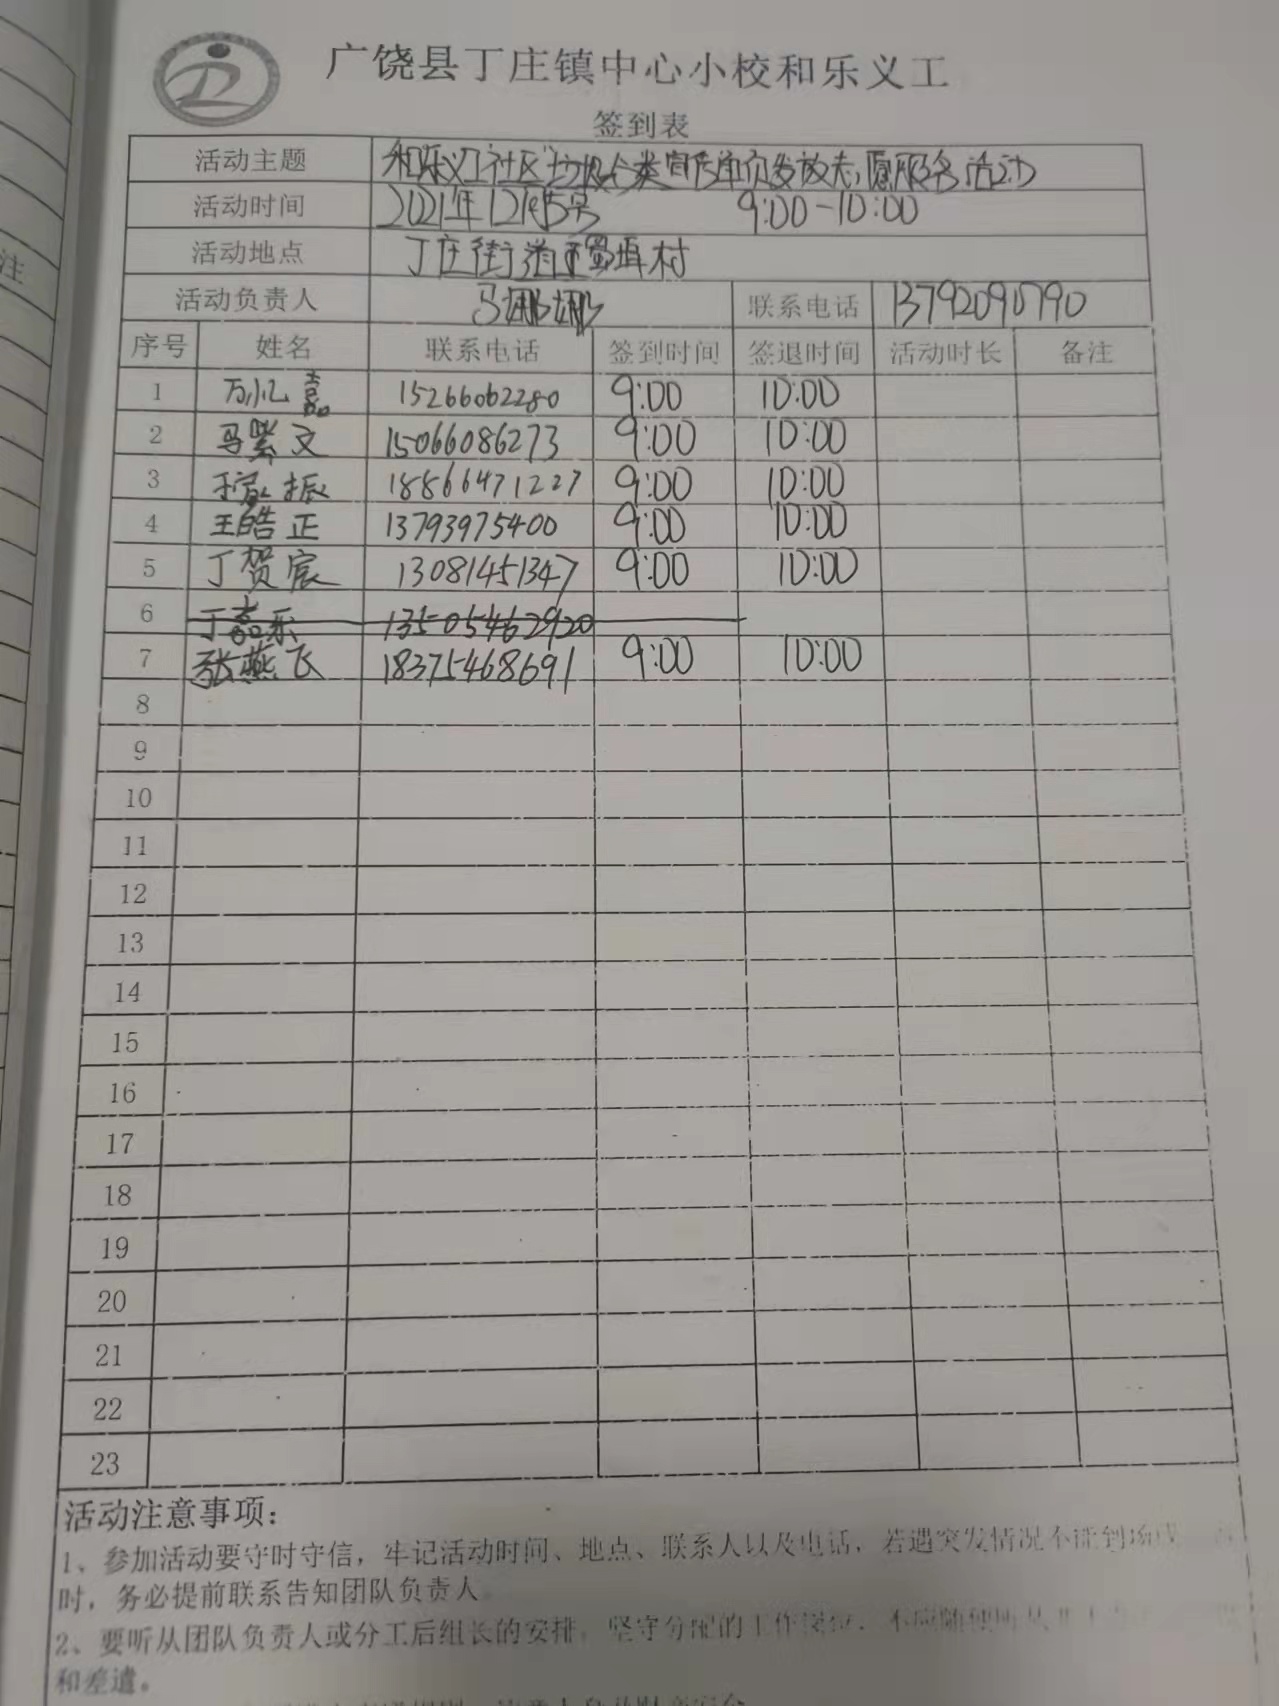 广饶县丁庄镇中心小校和乐义工
签到表
活动主题 和乐义工社区"垃圾分类宣传单页发放志愿服务活动
活动时间 2021年12月5号 9:00-10:00
活动地点 丁庄街道王署埠村
活动负责人 马娜娜 联系电话 13792091790
序号 姓名 联系电话 签到时间 签退时间 活动时长 备注
1 万忆嘉 15266062280 9:00 10:00
2 马紫文 15066086273 9:00 10:00
3 振 18866471227 9:00 10:00
4 王皓正 13793975400 9:00 10:00
5 丁贺宸 13081451347 9:00 10:00
6 丁嘉乐 13505462920
7 张燕飞 18375468691 9:00 10:00
8
9
10
11
12
13
14
15
16
17
18
19
20
21
22
23
活动注意事项:
1、参加活动要守时守信，牢记活动时间、地点、联系人以及电话，若遇突发情况不能到场或
时，务必提前联系告知团队负责人
2、要听从团队负责人或分工后组长的安排，坚守分配的工作岗位，不应随便
和差遣。
注